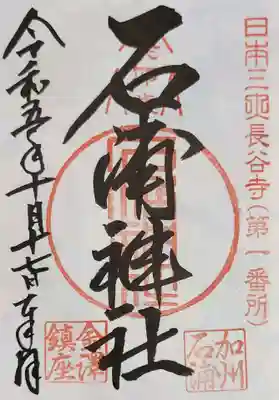 日本三大長谷寺(第一番所)
加州
石浦
石浦神社
令和五年十月十 日奉拝
金澤
鎮座